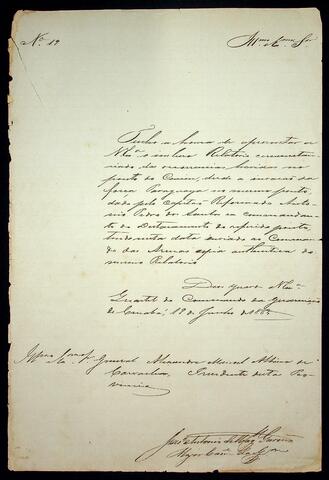 Nº 19
Illmo e Exmo Snr
Tenho a honra de apresentar a
V. Exª o incluso Relatorio circunstan-
ciado da occorrencias havidas no
ponto do desde a invasão da
força Paraguaya no mesmo ponto,
dado pelo Capitão Reformado Anto-
nio Pedro dos Santos ex commandan-
te do Destacamento do referido ponto,
tendo nesta data enviado ao Comman-
do das Armas copia authentica do
mesmo Relatorio.
Deos guarde V. Exª
Quartel do Commando da Guarnição
de Cuiabá 19 de Junho de
Illmo e Exmo Sr General Alexandre Manoel Albino de
Carvalho, Presidente desta Pro-
vincia
José Antonio
Major